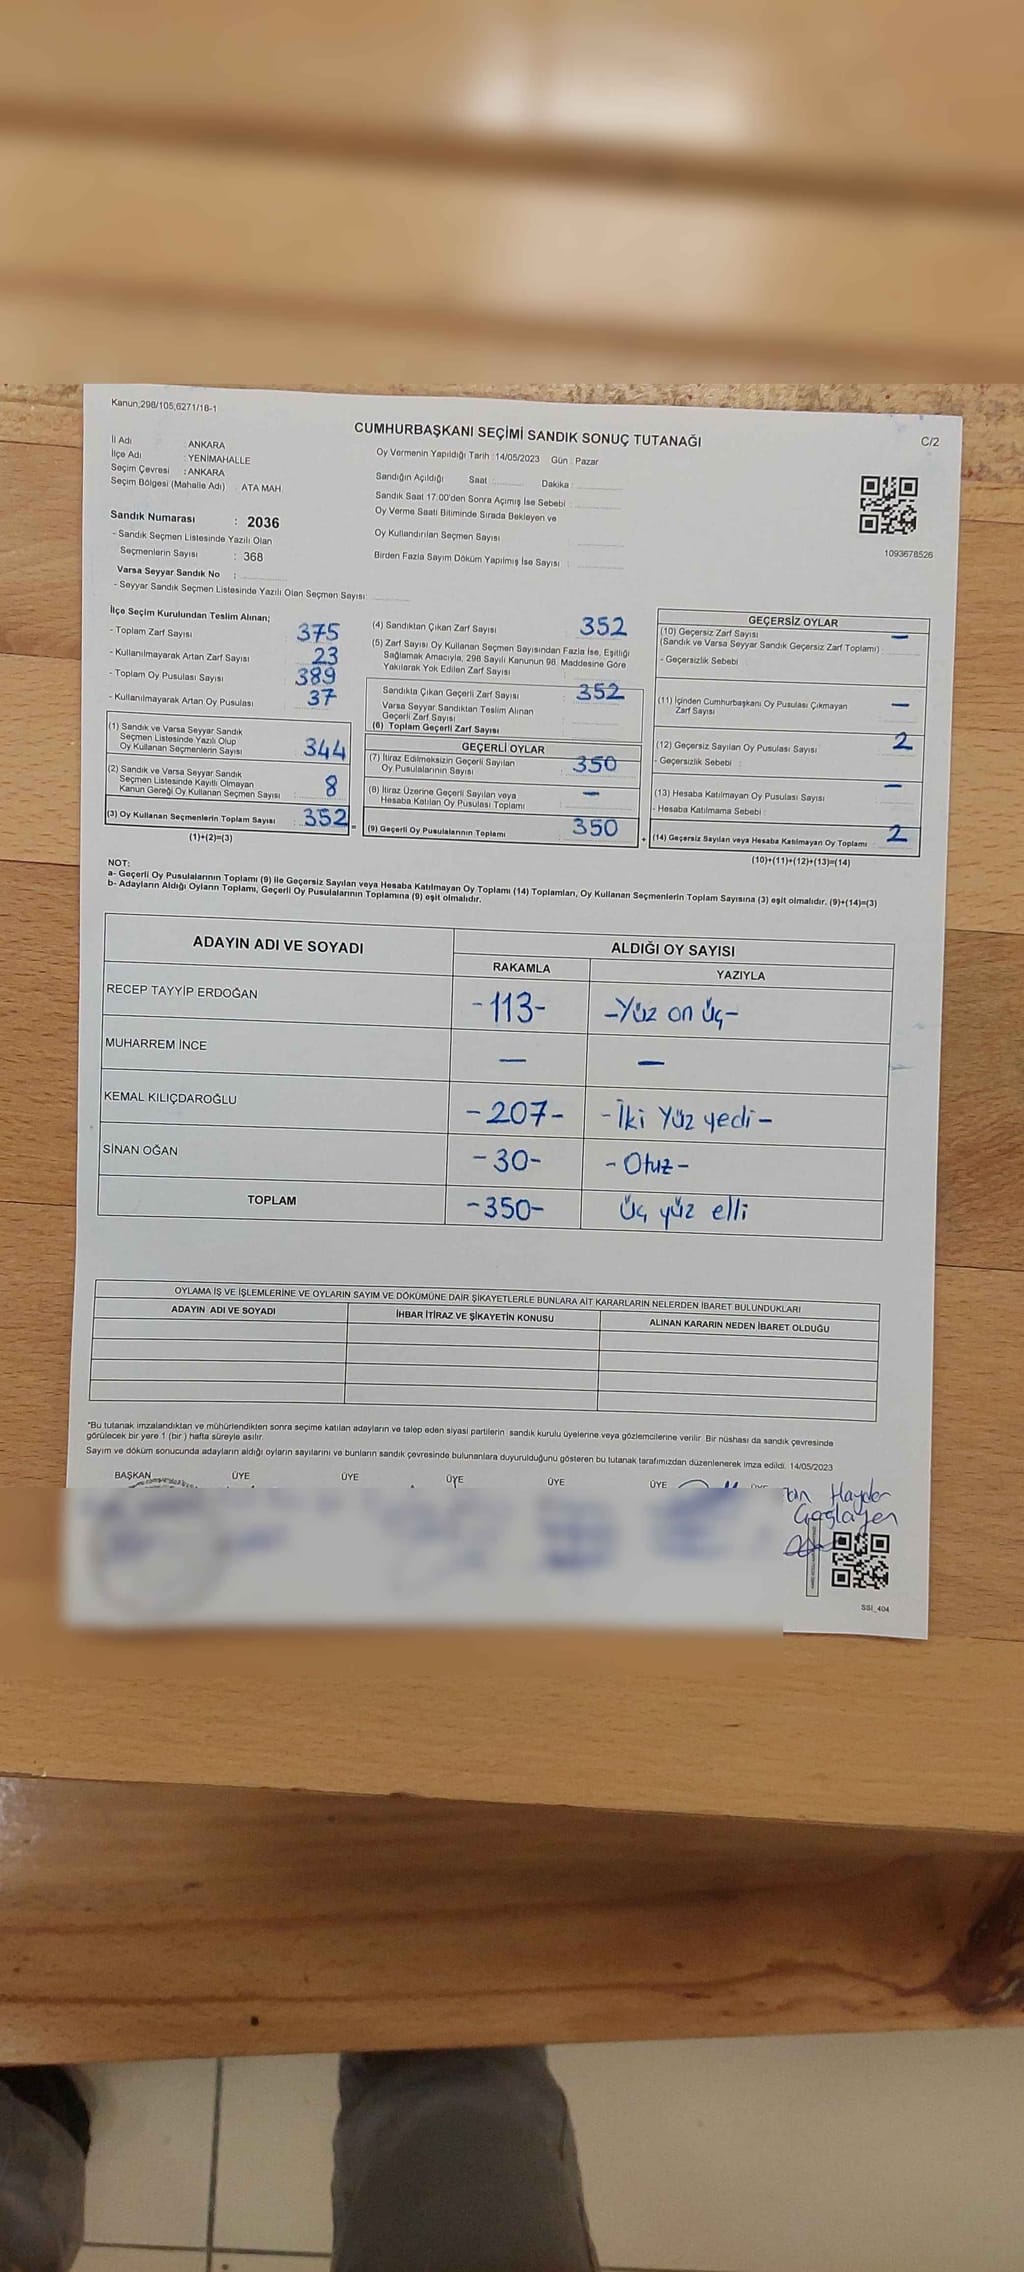 Kanun;298/105,6271/18-1
CUMHURBAŞKANI SEÇİMİ SANDIK SONUÇ TUTANAĞI
C/2
İl Adı : ANKARA
İlçe Adı : YENİMAHALLE
Seçim Çevresi : ANKARA
Seçim Bölgesi (Mahalle Adı) ATA MAH.
Oy Vermenin Yapıldığı Tarih :14/05/2023 Gün : Pazar
Sandığın Açıldığı Saat Dakika
Sandık Saat 17.00'den Sonra Açımış İse Sebebi :
Oy Verme Saati Bitiminde Sırada Bekleyen ve
Oy Kullandırılan Seçmen Sayısı
Birden Fazla Sayım Döküm Yapılmış İse Sayısı :
1093678526
Sandık Numarası : 2036
- Sandık Seçmen Listesinde Yazılı Olan
Seçmenlerin Sayısı : 368
Varsa Seyyar Sandık No :
- Seyyar Sandık Seçmen Listesinde Yazılı Olan Seçmen Sayısı:
İlçe Seçim Kurulundan Teslim Alınan;
- Toplam Zarf Sayısı : 375
- Kullanılmayarak Artan Zarf Sayısı : 23
- Toplam Oy Pusulası Sayısı : 389
- Kullanılmayarak Artan Oy Pusulası : 37
(1) Sandık ve Varsa Seyyar Sandık
Seçmen Listesinde Yazılı Olup
Oy Kullanan Seçmenlerin Sayısı : 344
(2) Sandık ve Varsa Seyyar Sandık
Seçmen Listesinde Kayıtlı Olmayan
Kanun Gereği Oy Kullanan Seçmen Sayısı : 8
(3) Oy Kullanan Seçmenlerin Toplam Sayısı : 352
(1)+(2)=(3)
(4) Sandıktan Çıkan Zarf Sayısı : 352
(5) Zarf Sayısı Oy Kullanan Seçmen Sayısından Fazla İse, Eşitliği
Sağlamak Amacıyla, 298 Sayılı Kanunun 98. Maddesine Göre
Yakılarak Yok Edilen Zarf Sayısı :
Sandıkta Çıkan Geçerli Zarf Sayısı : 352
Varsa Seyyar Sandıktan Teslim Alınan
Geçerli Zarf Sayısı :
(6) Toplam Geçerli Zarf Sayısı
GEÇERLİ OYLAR
(7) İtiraz Edilmeksizin Geçerli Sayılan
Oy Pusulalarının Sayısı : 350
(8) İtiraz Üzerine Geçerli Sayılan veya
Hesaba Katılan Oy Pusulası Toplamı : —
(9) Geçerli Oy Pusulalarının Toplamı : 350
GEÇERSİZ OYLAR
(10) Geçersiz Zarf Sayısı
(Sandık ve Varsa Seyyar Sandık Geçersiz Zarf Toplamı) : —
- Geçersizlik Sebebi
(11) İçinden Cumhurbaşkanı Oy Pusulası Çıkmayan
Zarf Sayısı —
(12) Geçersiz Sayılan Oy Pusulası Sayısı 2
- Geçersizlik Sebebi :
(13) Hesaba Katılmayan Oy Pusulası Sayısı —
- Hesaba Katılmama Sebebi :
(14) Geçersiz Sayılan veya Hesaba Katılmayan Oy Toplamı : 2
(10)+(11)+(12)+(13)=(14)
NOT:
a- Geçerli Oy Pusulalarının Toplamı (9) ile Geçersiz Sayılan veya Hesaba Katılmayan Oy Toplamı (14) Toplamları, Oy Kullanan Seçmenlerin Toplam Sayısına (3) eşit olmalıdır. (9)+(14)=(3)
b- Adayların Aldığı Oyların Toplamı, Geçerli Oy Pusulalarının Toplamına (9) eşit olmalıdır.
ADAYIN ADI VE SOYADI ALDIĞI OY SAYISI
RAKAMLA YAZIYLA
RECEP TAYYİP ERDOĞAN -113- -Yüz on üç-
MUHARREM İNCE — —
KEMAL KILIÇDAROĞLU -207- -İki Yüz yedi-
SİNAN OĞAN -30- -Otuz-
TOPLAM -350- Üç yüz elli
OYLAMA İŞ VE İŞLEMLERİNE VE OYLARIN SAYIM VE DÖKÜMÜNE DAİR ŞİKAYETLERLE BUNLARA AİT KARARLARIN NELERDEN İBARET BULUNDUKLARI
ADAYIN ADI VE SOYADI İHBAR İTİRAZ VE ŞİKAYETİN KONUSU ALINAN KARARIN NEDEN İBARET OLDUĞU
*Bu tutanak imzalandıktan ve mühürlendikten sonra seçime katılan adayların ve talep eden siyasi partilerin sandık kurulu üyelerine veya gözlemcilerine verilir. Bir nüshası da sandık çevresinde
görülecek bir yere 1 (bir ) hafta süreyle asılır.
Sayım ve döküm sonucunda adayların aldığı oyların sayılarını ve bunların sandık çevresinde bulunanlara duyurulduğunu gösteren bu tutanak tarafımızdan düzenlenerek imza edildi. 14/05/2023
BAŞKAN ÜYE ÜYE ÜYE ÜYE ÜYE
Haydar
SSI_404